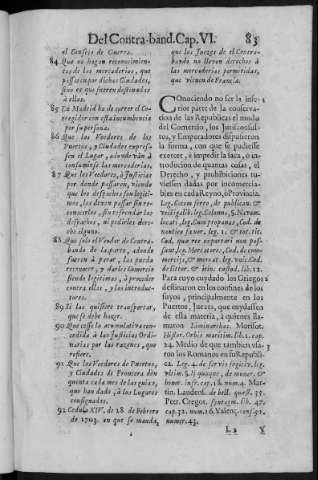 Del Contra-band. Cap. VI. 83
el Consejo de Guerra.
84 Que no hagan reconocimientos
de los mercaderias, que
passaren por dichas Ciudades,
sino es que fueren destinadas
à ellas.
85 En Madrid ha de correr el Corregidor
con esta incumbencia
por su persona.
86 Que los Veedores de los
Puertos, y Ciudades expressen
el Lugar, adonde van à
consumirse las mercaderias.
87 Que los Veedores, ò Justicias
por donde passaren, viendo
que los despachos son legitimos,
los dexen passar sin reconocerlos,
sin refrendar los
despachos, ni pedirles derecho
alguno.
88 Que solo el Veedor de Contrabando
de la parte, adonde
fueren à parar, los pueda
reconocer, y darles Comercio
siendo legitimas, ò proceder
contra ellas, y los introductores.
89 Si las quisiere transportar,
que se debe hazer.
90 Que cesse la acumulativa concedida
à las Justicias Ordinarias
por las razones, que
refiere.
91 Que los Veedores de Puertos,
y Ciudades de Frontera dèn
quenta cada mes de las guias,
que han dado, à los Lugares
consignados.
92 Cedula XIV. de 28 de Febrero
de 1703. en que se manda,
que los Juezes de el Contrabando
no lleven derechos à
las mercaderias permitidas,
que vienen de Francia.
COnociendo no ser la inferior
parte de la conservacion
de las Republicas el modo
del Comercio, los Jurisconsultos,
y Emperadores dispusieron
la forma, con que se pudiesse
exercer, è impedir la saca, ò introducion
de quantas cosas, el
Derecho, y prohibiciones tuviessen
dadas por incomerciables
en cada Reyno, ò Provincia.
Para cuyo cuydado los Griegos
destinaron en los confines de los
suyos, principalmente en los
Puertos, Juezes, que cuydassen
de esta materia, à quienes llamaron
Liminarchas. Morisot.
Histor. Orbis maritim. lib. 1. cap.
24. Medio de que tambien usaron
los Romanos en su Republica.
Martin.
Laudens. de bell. quæst. 35.
Petr. Gregor. syntagm. lib. 47.
cap. 32. num. 16. Valenç. cons. 92.
numer. 43.
L 2 Y